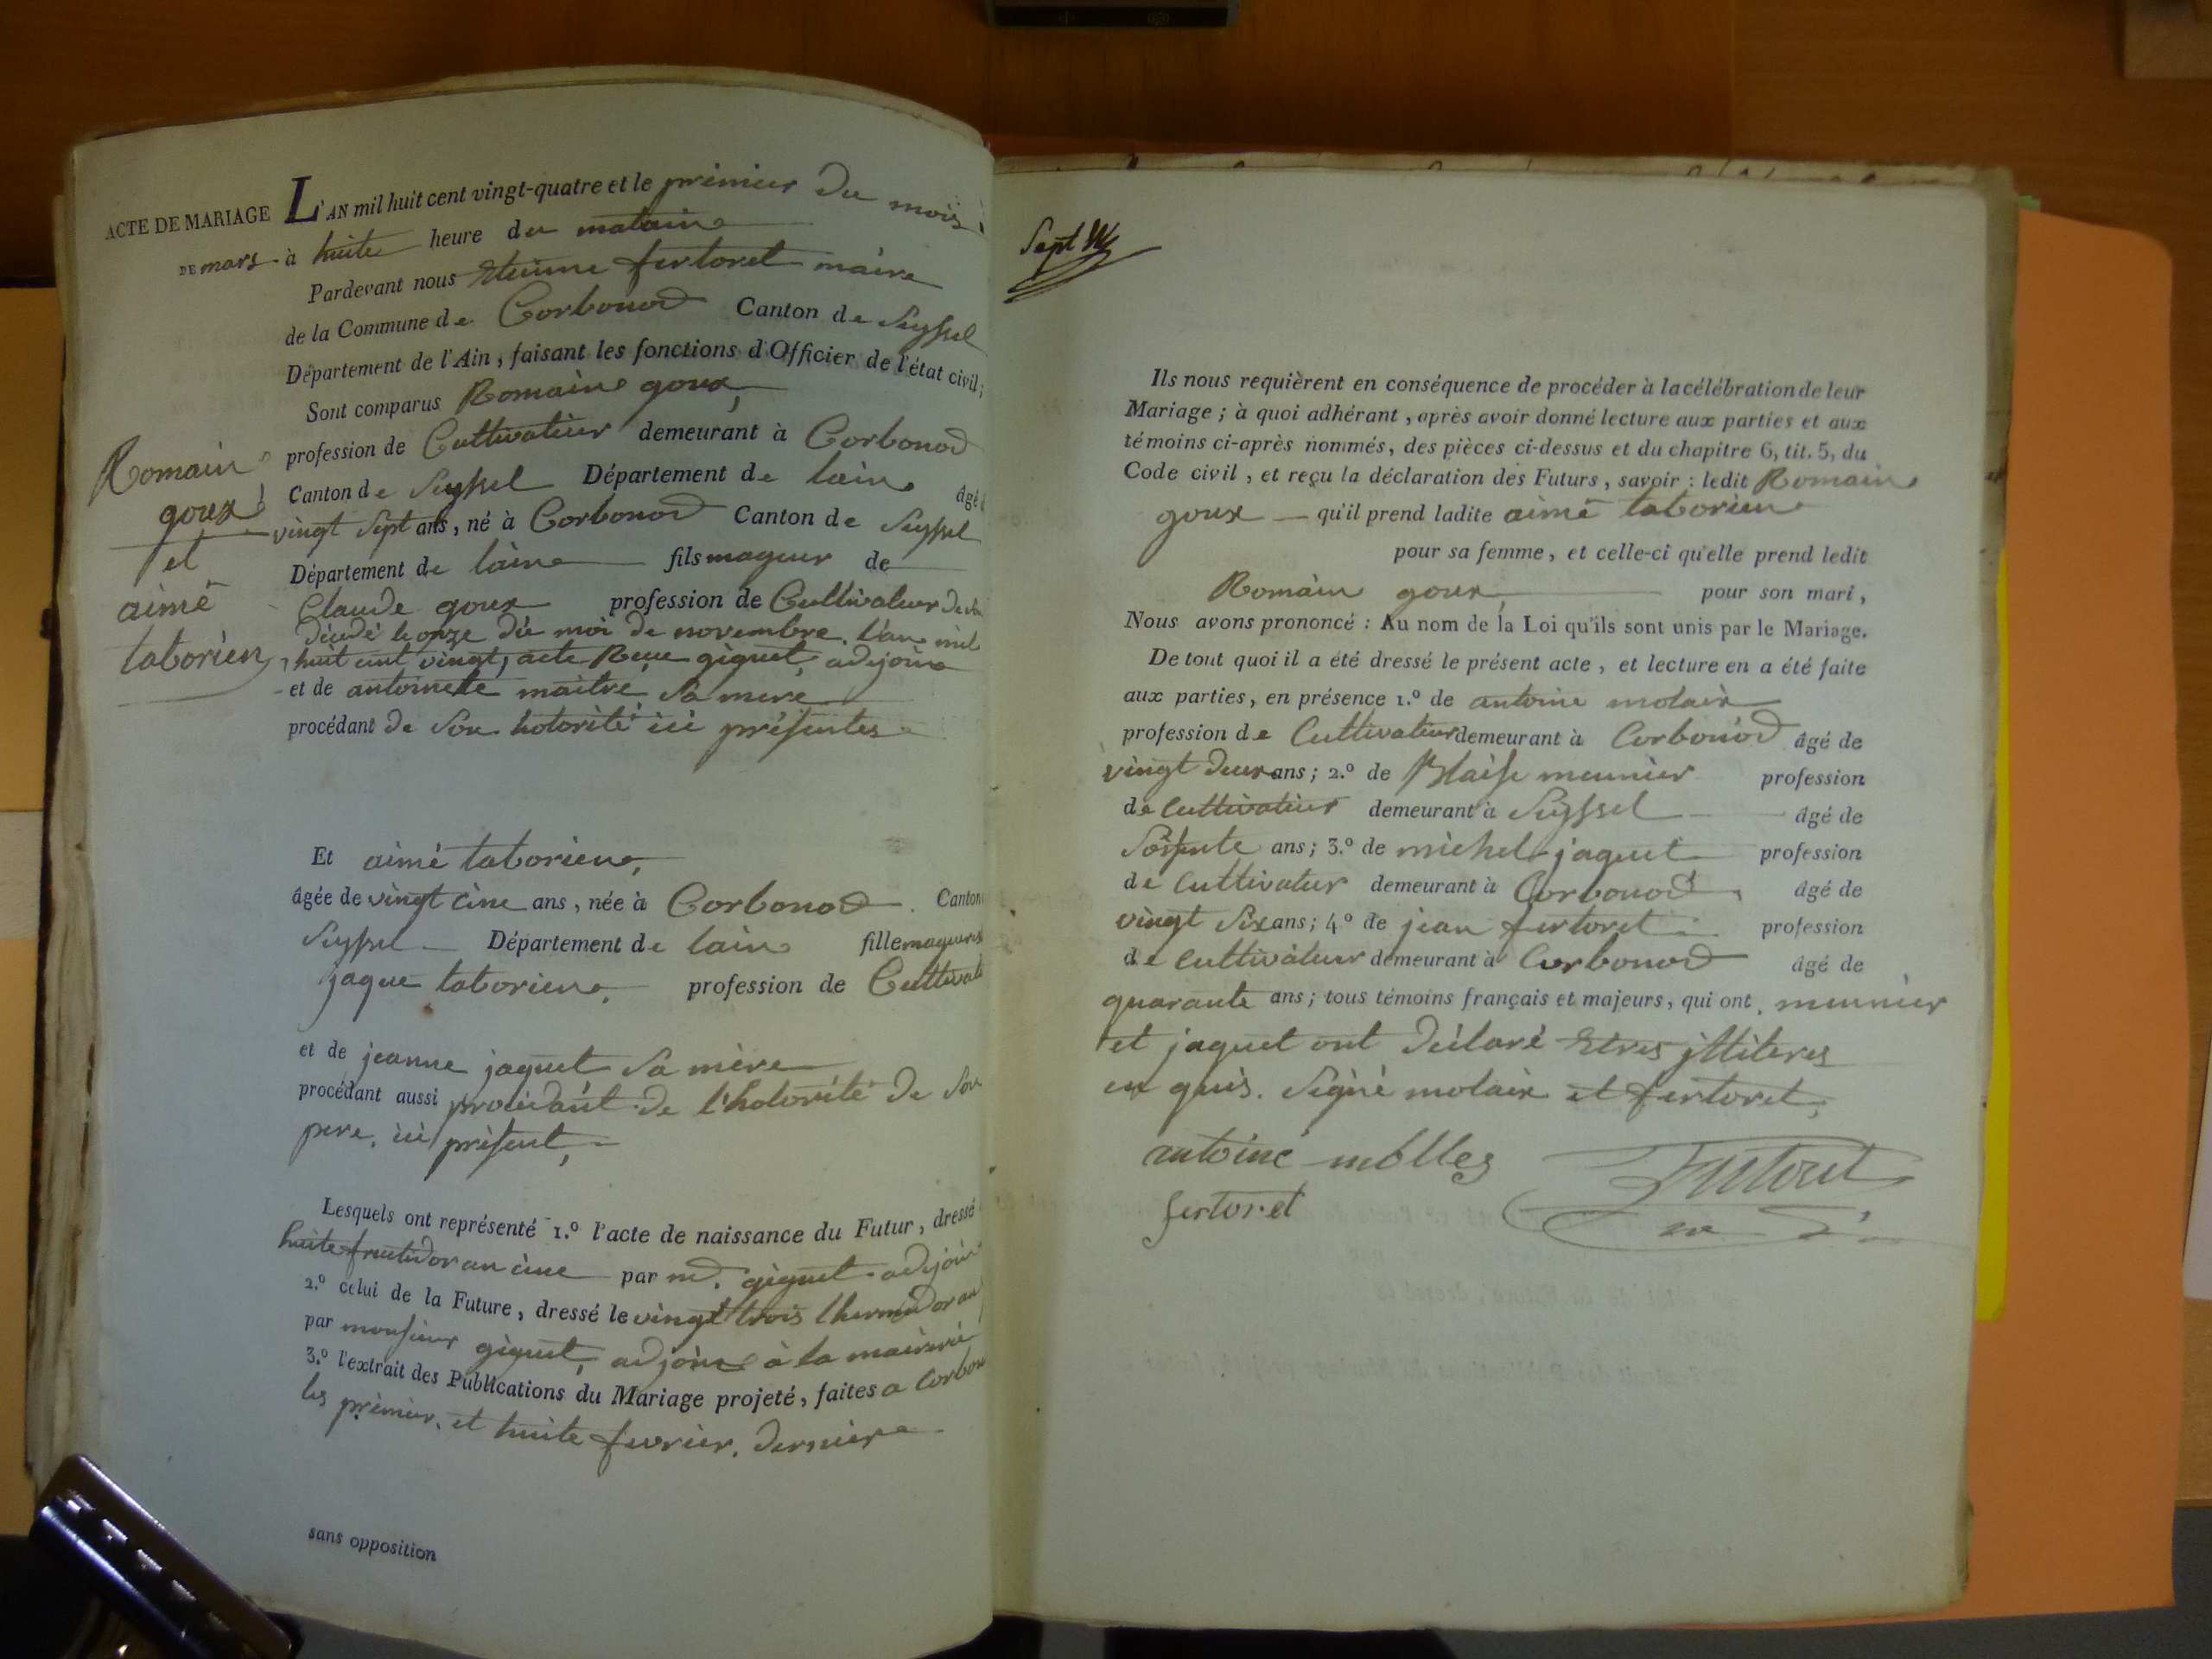 ACTE DE MARIAGE L'AN mil huit cent vingt-quatre et le primier du mois
DE mars à huite heure du mataine
Pardevant nous Etienne fertoret maire
de la Commune de Corbonod Canton de Seyssel
Département de l'Ain, faisant les fonctions d'Officier de l'état civil;
Sont comparus Romain goux,
profession de Cultivateur demeurant à Corbonod
Canton de Seyssel Département de lain âgé
vingt Sept ans, né à Corbonod Canton de Seyssel
Département de lain fils mageur de
Claude goux profession de Cultivateur
décédé le onze du moi de novembre l'an mil
huit cent vingt, acte Reçue giguet, adejoin
et de antoinete maitre Sa mere
procédant de Son hotorité ici présentes
Romain
goux
et
aimé
taborien
Et aimé taborien,
âgée de vingt cinc ans, née à Corbonod Canton
Seyssel Département de lain fille mageure
jaque taborien, profession de Cultivate
et de jeanne jaquet Sa mère
procédant aussi procédant de l'hotorité de Son
pere, ici présent,
Lesquels ont représenté 1.º l'acte de naissance du Futur, dressé
huite fructidor an cinc par md. giguet adejoin
2.º celui de la Future, dressé le vingt trois thermidor an
par monsieur giguet, adjoint à la mairie
3.º l'extrait des Publications du Mariage projeté, faites a Corbon
les primier et huite fevrier, derniere
sans opposition
Sept
Ils nous requièrent en conséquence de procéder à la célébration de leur
Mariage; à quoi adhérant, après avoir donné lecture aux parties et aux
témoins ci-après nommés, des pièces ci-dessus et du chapitre 6, tit. 5, du
Code civil, et reçu la déclaration des Futurs, savoir: ledit Romain
goux qu'il prend ladite aimé taborien
pour sa femme, et celle-ci qu'elle prend ledit
Romain goux, pour son mari,
Nous avons prononcé: Au nom de la Loi qu'ils sont unis par le Mariage.
De tout quoi il a été dressé le présent acte, et lecture en a été faite
aux parties, en présence 1.º de antoine molair
profession de Cultivateur demeurant à Corbonod âgé de
vingt deux ans; 2.º de Blaise meunier profession
de cultivateur demeurant à Seyssel âgé de
Soisente ans; 3.º de michel jaquet profession
de Cultivatur demeurant à Corbonod âgé de
vingt Six ans; 4.º de jean fertoret profession
de cultivateur demeurant à Corbonod âgé de
quarante ans; tous témoins français et majeurs, qui ont, meunier
et jaquet ont déclaré Etres jlliteres
en quis. Signé molair et fertoret,
antoine molleg
fertoret
Fertoret